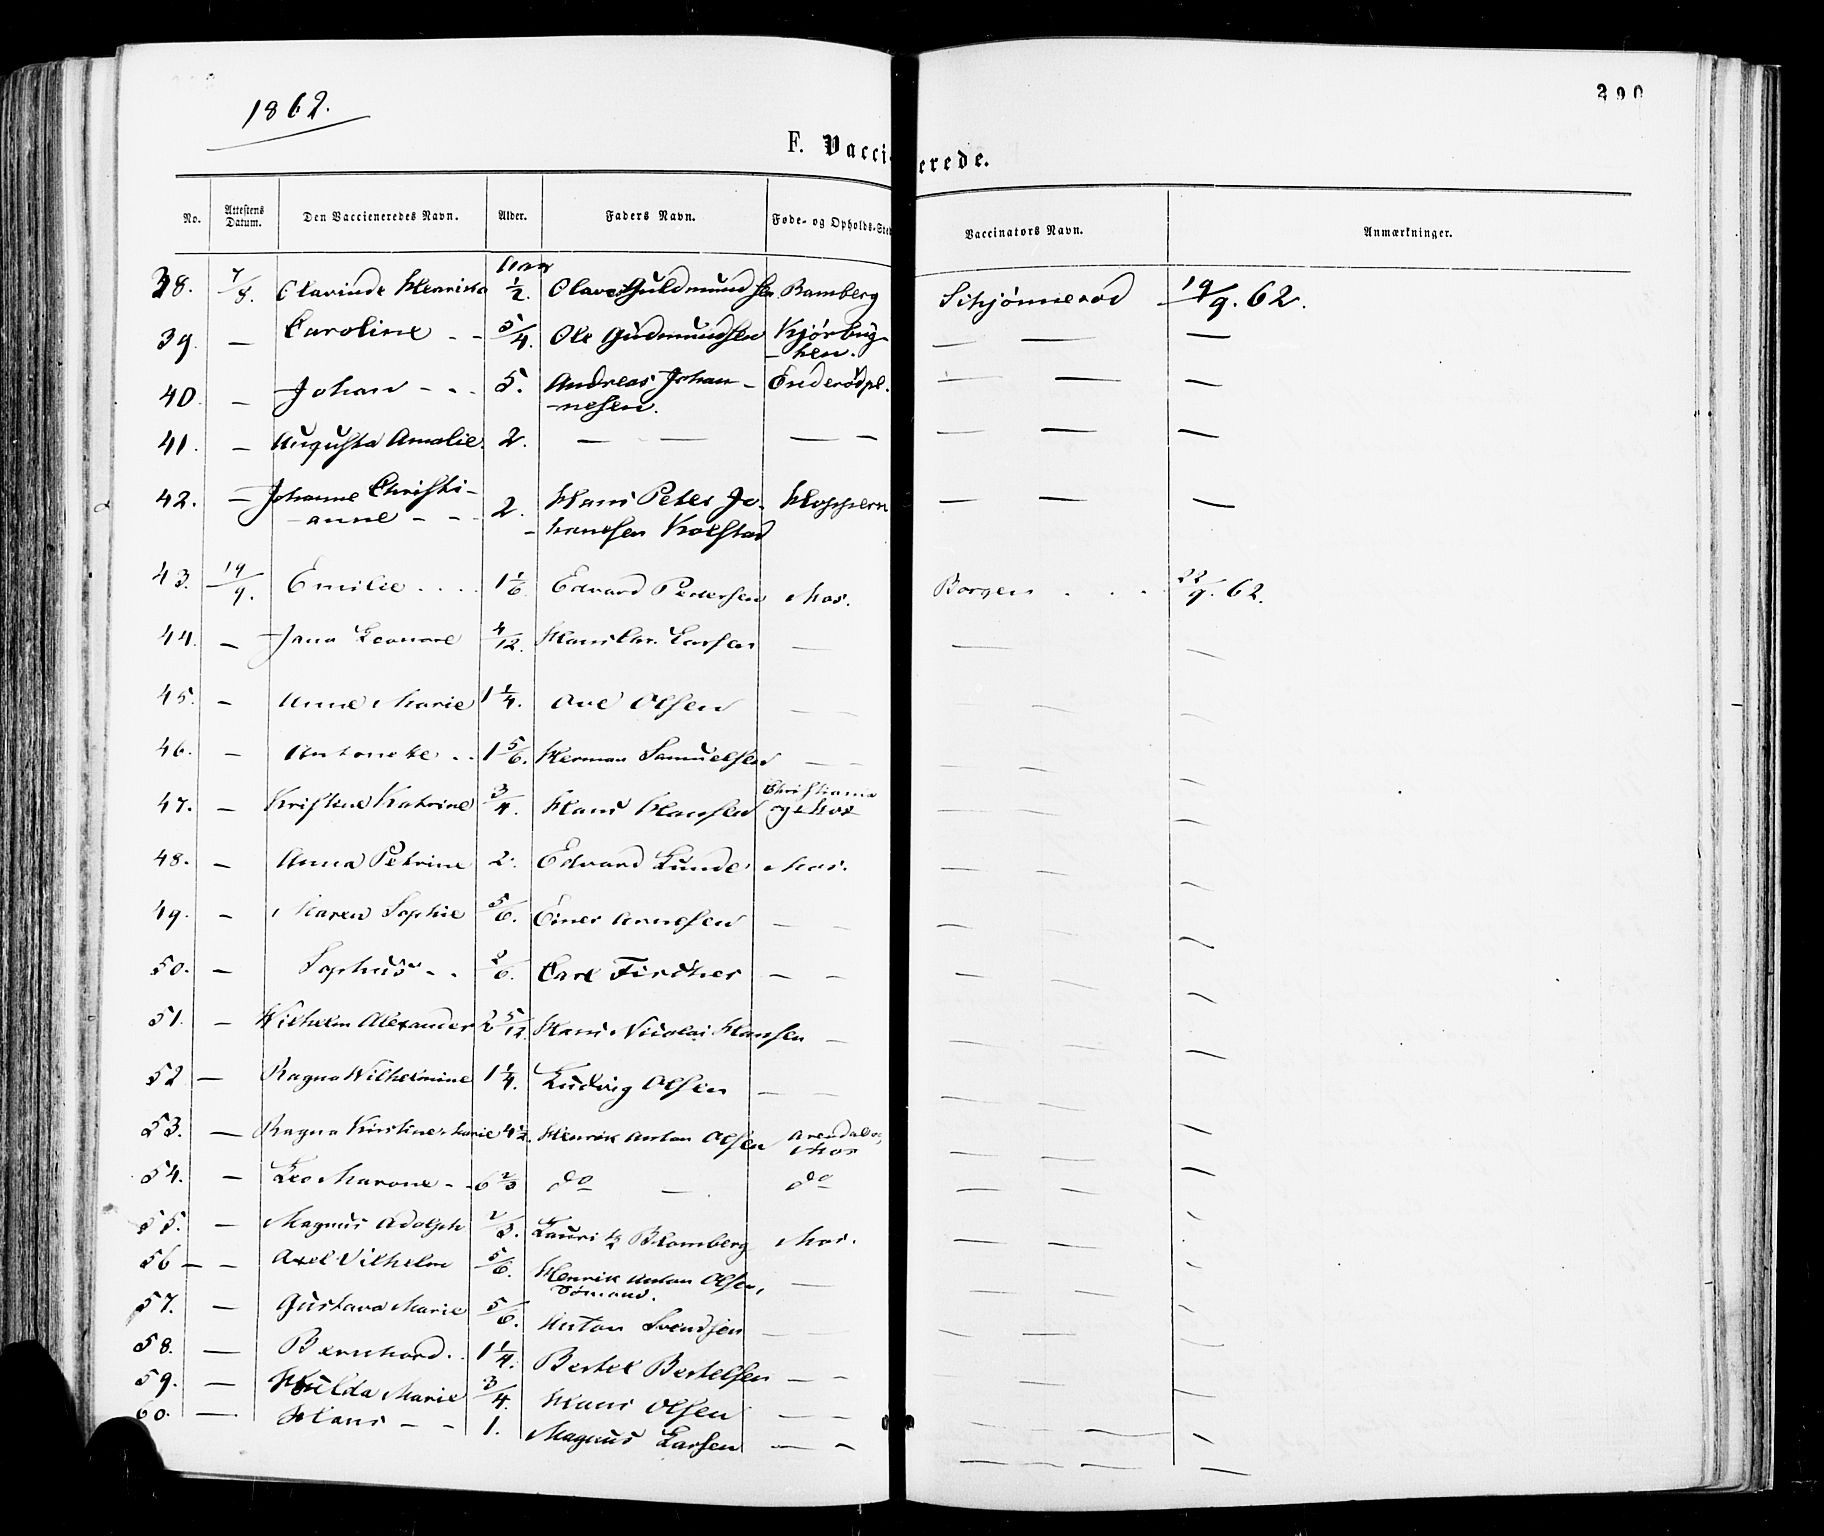 1862.
290
F. Vaccinerede.
No. Attestens Datum. Den Vaccineredes Navn. Alder. Faders Navn. Føde- og Opholds-Sted Vaccinators Navn. Anmærkninger.
Aar
38. 7/8. Olavinde 1/2. Olave Guldmundsen Bamberg Schjønnerød 19/9. 62.
39. — Caroline - - 5/4. Ole Gudmundsen Kjørbøg- — — —
hen.
40. — Johan - - . 5. Andreas Johan- Enderødpl. — — —
-nesen.
41. — Augusta Amalie. 2. — — — — — — —
42. — Johanne Christi- 2. Hans Peter Jo- Kloppern — — —
-anne - - hansen Kolstad
43. 19/9. Emilie . . . . 1 1/6. Edvard Pedersen Mos. Borgen . . . 22/9. 62.
44. — Jana Leonore 4/12. Hans Chr. Larsen — — —
45. — Anne Marie 1 1/4. Ole Olsen — — — — —
46. — Antonette . . 1 5/6. Herman Samuelsen — — — — —
47. — Kristine Katrine 3/4. Hans Hansen Christiania — — —
og Mos
48. — Anna Petrine 2. Edvard Lunde Mos. — — —
49. — Maren Sophie 5/6. Einer Arnesen — — — — —
50. — Sophus - . Carl Fischer — — — — —
51. — Wilhelm Alexander 2 5/12. Hans Nicolai Hansen — — — —
52 — Ragna Wilhelmine 1 1/4. Ludvig Olsen — — — — —
53. — Ragna Kristine Marie 4 1/2. Henrik Anton Olsen Arendal og — — —
Mos
54. — Leo Marone - - 6 2/3 do — do — — —
55. — Magnus Adolph 2/3. Lauritz Blomberg Mos. — — —
56 — — Axel Vilhelm 5/6. Henrik Anton Olsen, — — — —
Sømand.
57. — Gustava Marie 5/6. Anton Svendsen — — — — —
58. — Bernhard . . 1 1/4. Bertel Bertelsen — — — — —
59. — Hulda Marie 3/4. Hans Olsen — — — — —
60. — Hans - - 1. Magnus Larsen — — — — —